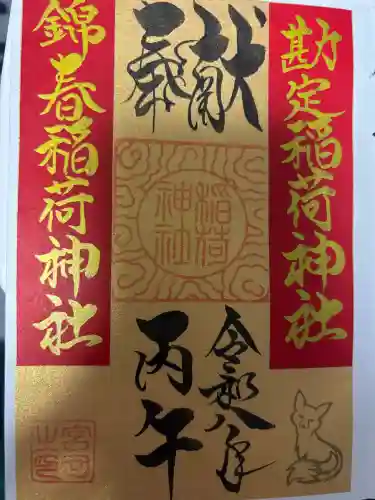 勘定稲荷神社
奉献
稲荷
神社
令和八年
丙午
錦春稲荷神社